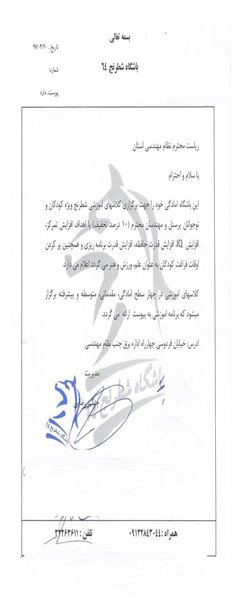 بسمه تعالی
باشگاه شطرنج ۶۴
تاریخ:
شماره:
پیوست: دارد
ریاست محترم نظام مهندسی استان
با سلام و احترام
این باشگاه امادگی خود را جهت برگزاری کلاسهای اموزشی شطرنج ویژه کودکان و
نوجوانان پرسنل و مهندسان محترم (۱۰ درصد تخفیف) با اهداف افزایش تمرکز،
افزایش IQ، افزایش قدرت حافظه، افزایش قدرت برنامه ریزی و همچنین پر کردن
اوقات فراغت کودکان به عنوان علم، ورزش و هنر می گردد اعلام می دارد.
کلاسهای اموزشی در چهار سطح امادگی، مقدماتی، متوسطه و پیشرفته برگزار
میشود که برنامه اموزشی به پیوست ارائه می گردد.
ادرس: خیابان فردوسی چهارراه اداره برق جنب نظام مهندسی
مدیریت
باشگاه شطرنج
همراه: ۰۹۱۳۲۸۴۳۰۴۴
تلفن: ۳۲۲۶۳۶۱۱